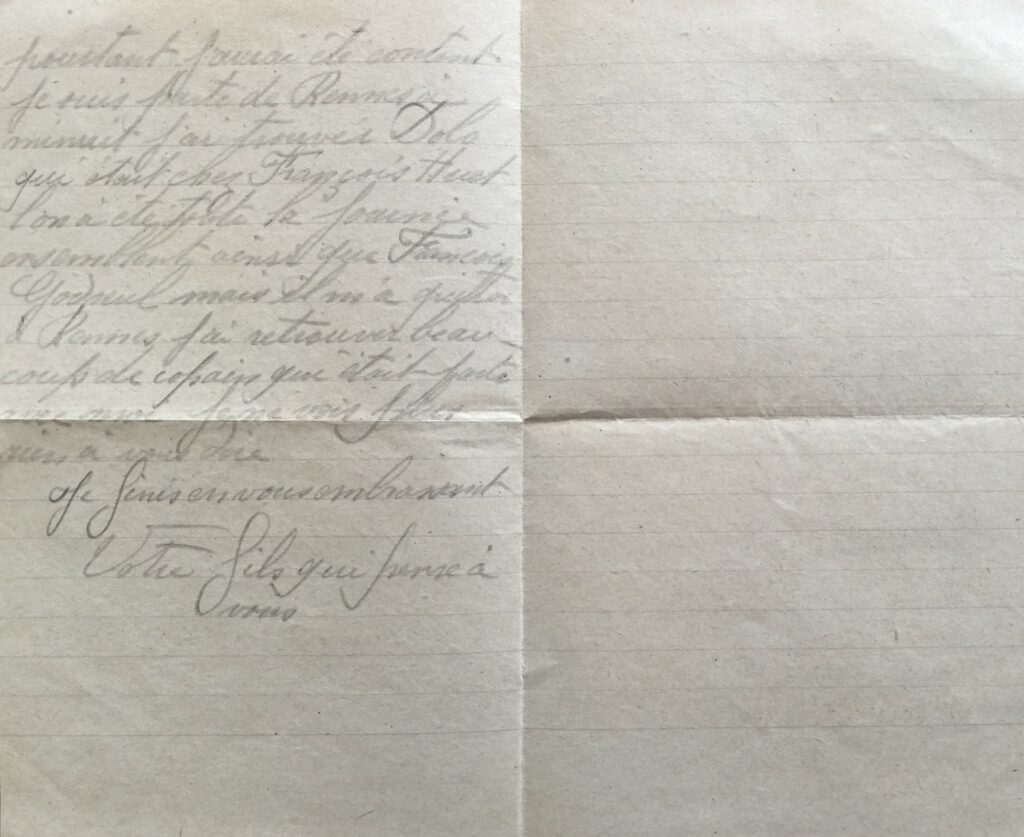 pourtant jaurai été content
je suis parté de Rennes à
minuit j'ai trouver Dolo
qui était chez François Huet
l'on a été toute la journée
ensemblent ainsi que François
mais il m'a quitter
à Rennes j'ai retrouver beau-
coup de copain qui était parté
avec moi Je ne vois plus
rien à vous dire
Je finis en vous embrassant
Votre fils qui pense à
vous